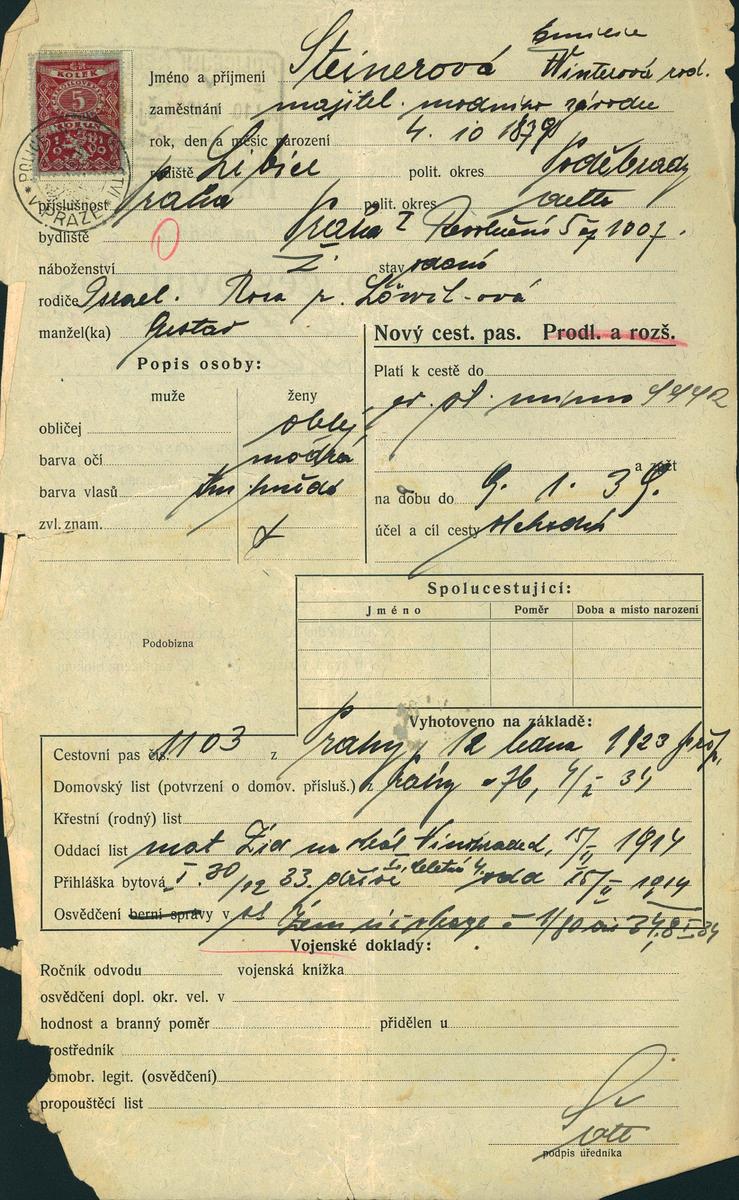 KOLEK
5
V PRAZE
Emilie
Jméno a příjmení Steinerová Winterová rod.
zaměstnání majitel. modního závodu
rok, den a měsíc narození 4. 10 1879
rodiště Libice polit. okres Poděbrady
příslušnost Praha polit. okres detto
bydliště Praha I Revoluční 5 čp 1007.
náboženství ž. stav vdaná
rodiče Israel. Rosa r. Löwit-ová
manžel(ka) Gustav
Nový cest. pas. Prodl. a rozš.
Popis osoby:
muže ženy
obličej oblý
barva očí modrá
barva vlasů tm. hnědá
zvl. znam.
Platí k cestě do
ev. pl. mimo
a zpět
na dobu do 9. 1. 39.
účel a cíl cesty obchodní
Spolucestující:
Jméno Poměr Doba a místo narození
Podobizna
Vyhotoveno na základě:
Cestovní pas čís. 1103 z Prahy, 12 ledna 1923
Domovský list (potvrzení o domov. přísluš.) z Prahy
Křestní (rodný) list
Oddací list mat. Žid. na Král Vinohradech, 15/II 1914
Přihláška bytová I. 30/12 33.
Osvědčení berní správy v
Vojenské doklady:
Ročník odvodu vojenská knížka
osvědčení dopl. okr. vel. v
hodnost a branný poměr přidělen u
prostředník
domobr. legit. (osvědčení)
propouštěcí list
podpis úředníka